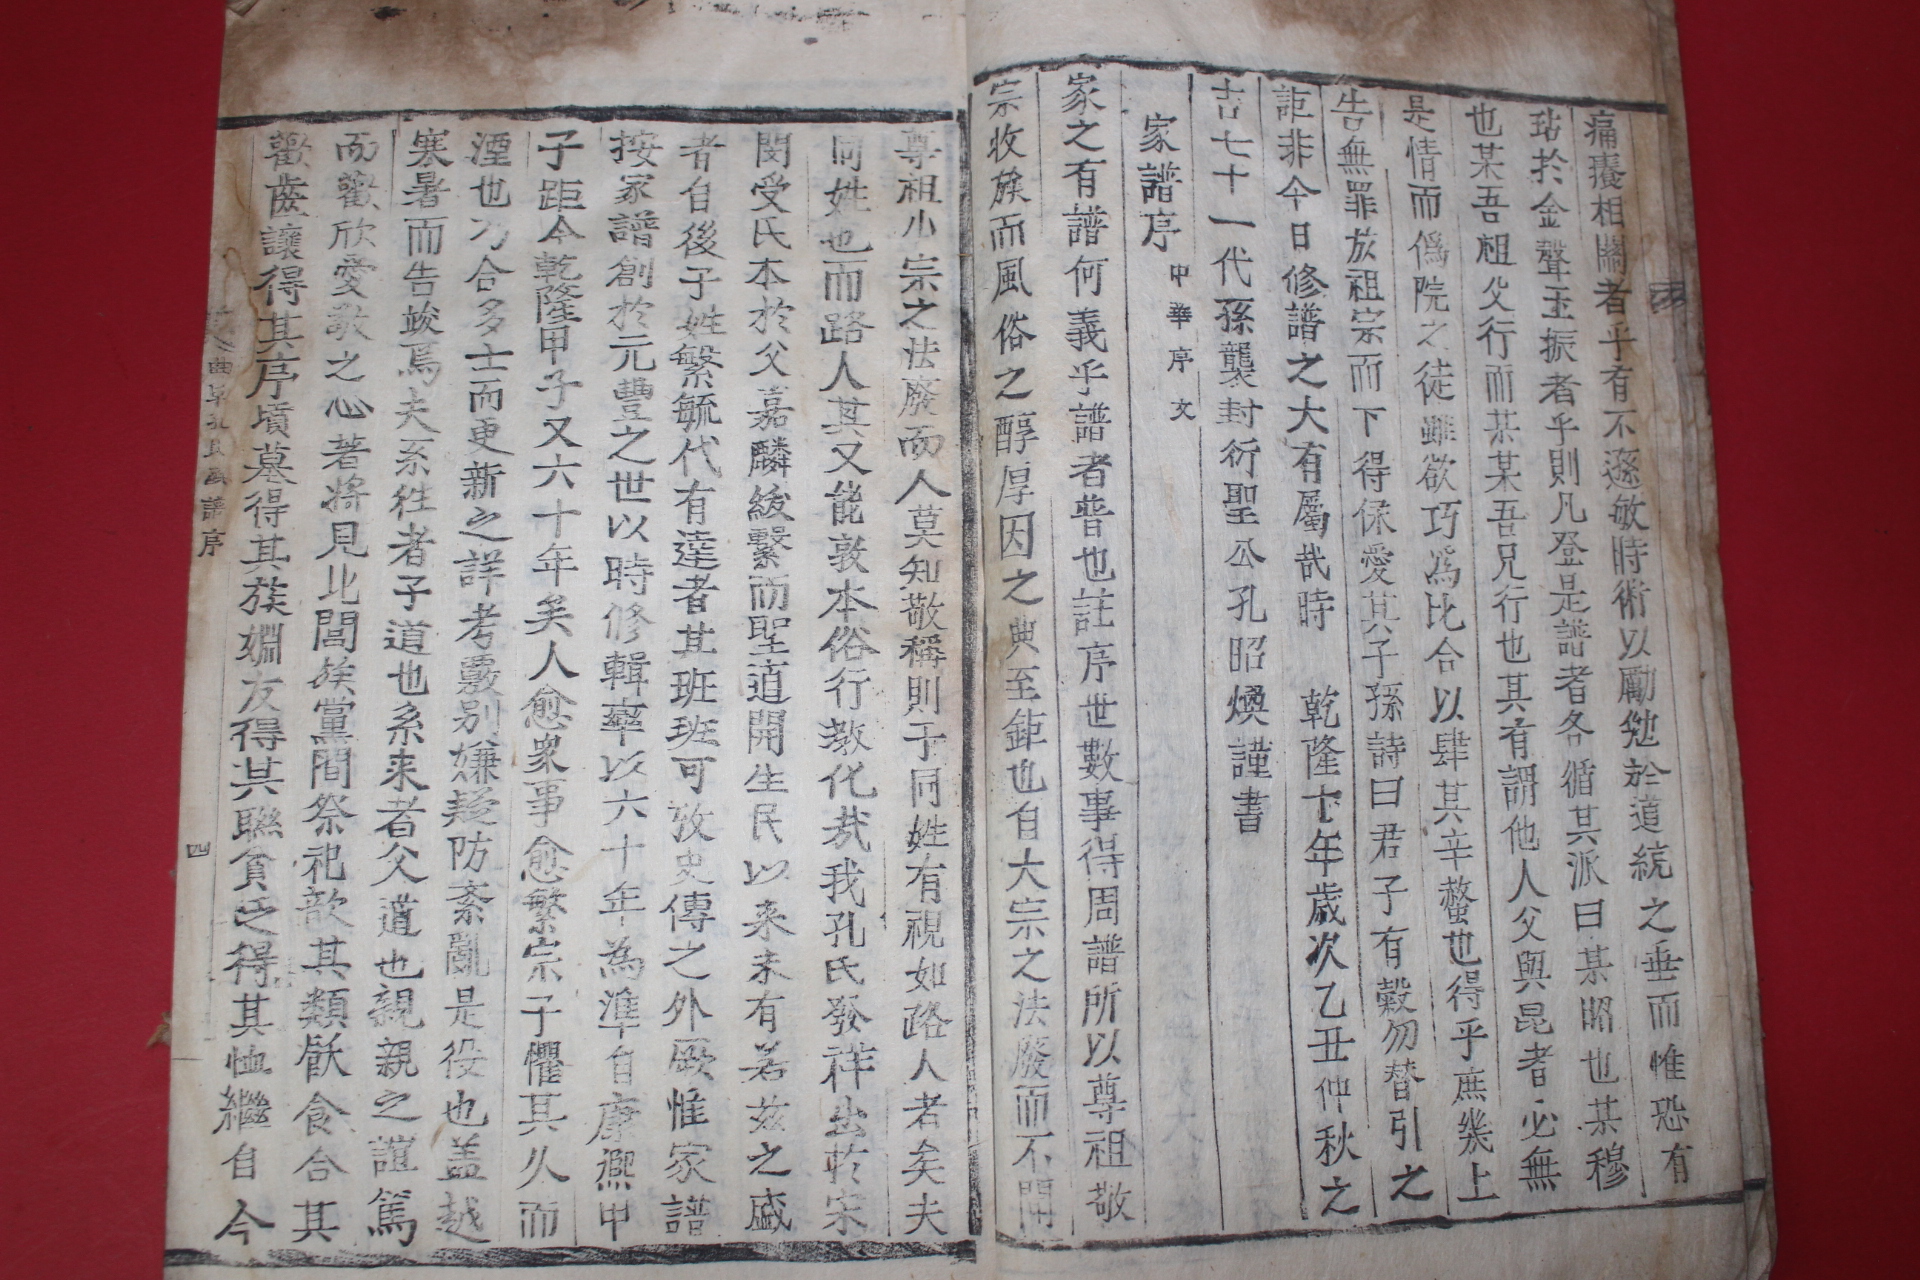 痛癢相關者乎有不遜敏時術以勵勉於道統之垂而惟恐有
玷於金聲玉振者乎則凡登是譜者各循其派曰某昭也某穆
也某吾祖父行而某某吾兄行也其有謂他人父與昆者必無
是情而僞院之徒雖欲巧爲比合以肆其辛螫也得乎庶幾上
告無罪於祖宗而下得保愛其子孫詩曰君子有穀勿替引之
詎非今日修譜之大有屬哉時 乾隆十年歲次乙丑仲秋之
吉七十一代孫襲封衍聖公孔昭煥謹書
家譜序 中華序文
家之有譜何義乎譜者普也註序世數事得周譜所以尊祖敬
宗收族而風俗之醇厚因之典至鉅也自大宗之法廢而不開
尊祖小宗之法廢而人莫知敬稱則于同姓有視如路人者矣夫
同姓也而路人其又能敦本俗行教化哉我孔氏發祥出於宋
閔受氏本於父嘉麟紱繫而聖道開生民以來未有若茲之盛
者自後子姓繁毓代有達者其班班可攷史傳之外厥惟家譜
按家譜創於元豐之世以時修輯率以六十年為準自康熙甲
子距今乾隆甲子又六十年矣人愈衆事愈繁宗子懼其久而
湮也乃合多士而更新之詳考覈别嫌疑防紊亂是役也盖越
寒暑而告竣焉夫系徃者子道也系来者父道也親親之誼篤
而歡欣愛敬之心者將見比閭族黨間祭祀歆其類厭食合其
歡齒讓得其序墳墓得其族婣友得其聯貧乏得其恤繼自今
曲阜孔氏家譜序
四